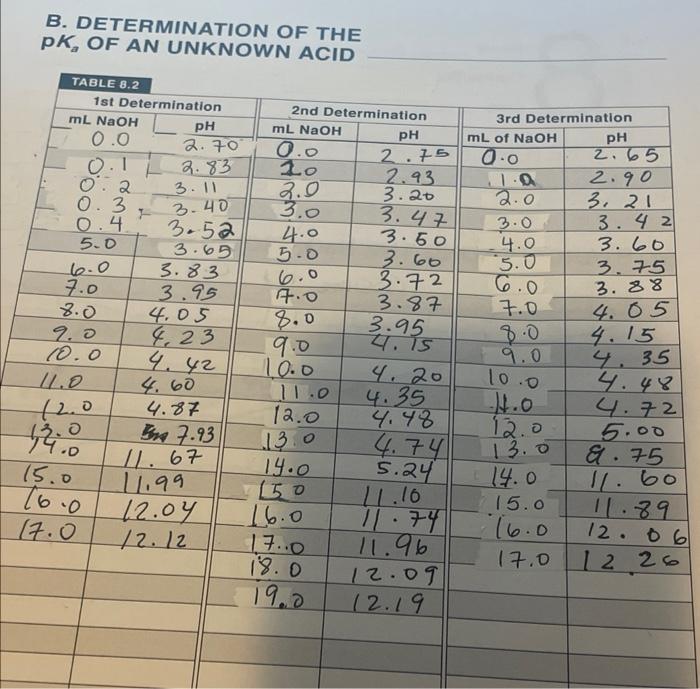 B. DETERMINATION OF THE
pKa OF AN UNKNOWN ACID
TABLE 8.2
1st Determination 2nd Determination 3rd Determination
mL NaOH pH mL NaOH pH mL of NaOH pH
0.0 2.70 0.0 2.75 0.0 2.65
0.1 2.83 1.0 2.93 1.0 2.90
0.2 3.11 2.0 3.20 2.0 3.21
0.3 3.40 3.0 3.47 3.0 3.42
0.4 3.52 4.0 3.50 4.0 3.60
5.0 3.65 5.0 3.60 5.0 3.75
6.0 3.83 6.0 3.72 6.0 3.88
7.0 3.95 7.0 3.87 7.0 4.05
8.0 4.05 8.0 3.95 8.0 4.15
9.0 4.23 9.0 4.15 9.0 4.35
10.0 4.42 10.0 4.20 10.0 4.48
11.0 4.60 11.0 4.35 11.0 4.72
12.0 4.87 12.0 4.48 12.0 5.00
13.0 7.93 13.0 4.74 13.0 8.75
14.0 11.67 14.0 5.24 14.0 11.60
15.0 11.99 15.0 11.10 15.0 11.89
16.0 12.04 16.0 11.74 16.0 12.06
17.0 12.12 17.0 11.96 17.0 12 26
18.0 12.09
19.0 12.19